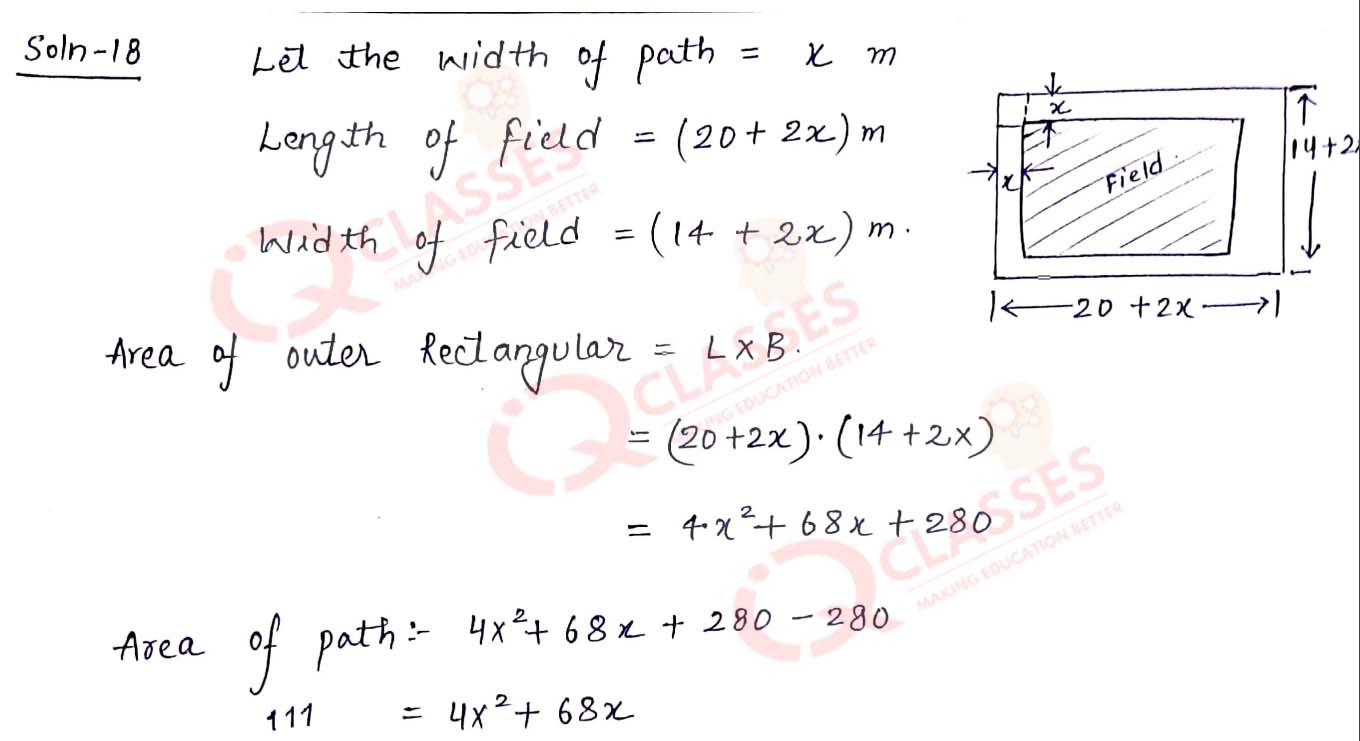 Soln-18
Let the width of path = x m
Length of field = (20 + 2x) m
Width of field = (14 + 2x) m.
x
x
Field.
14+2
20 + 2x
Area of outer Rectangular = L X B.
= (20+2x)·(14+2x)
= 4x²+ 68x + 280
Area of path:- 4x²+ 68x + 280 - 280
111 = 4x²+ 68x
CLASSES
MAKING EDUCATION BETTER
CLASSES
MAKING EDUCATION BETTER
CLASSES
MAKING EDUCATION BETTER